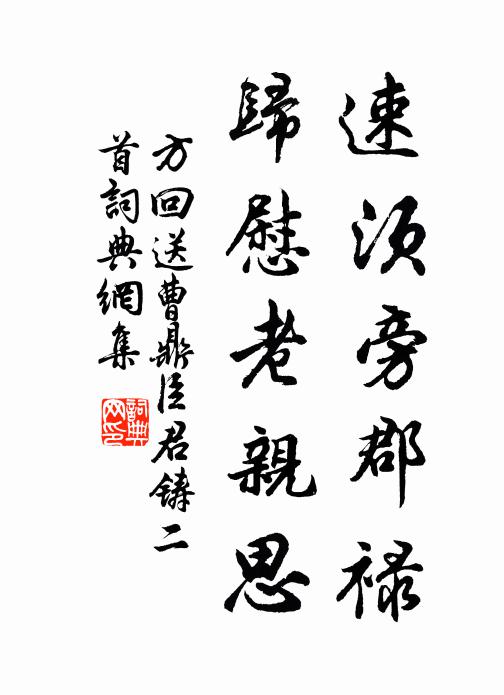 速須旁郡祿
歸慰老親思
方回送曹鼎臣君鑄二
首詞典網集
詞典
网印